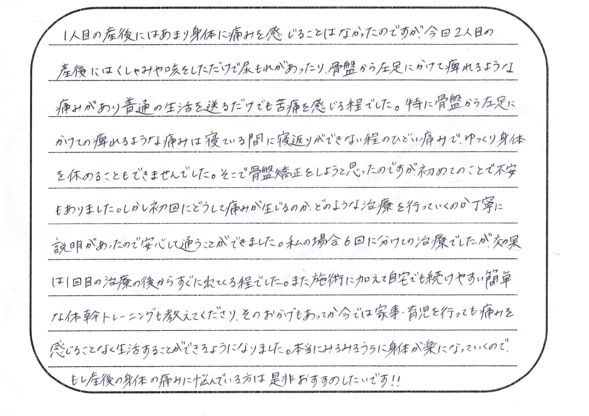 1人目の産後にはあまり身体に痛みを感じることはなかったのですが、今回2人目の
産後にはくしゃみや咳をしただけで尿もれがあったり、骨盤から左足にかけて痺れるような
痛みがあり普通の生活を送るだけでも苦痛を感じる程でした。特に骨盤から左足に
かけての痺れるような痛みは寝ている間に寝返りができない程のひどい痛みで、ゆっくり身体
を休めることもできませんでした。そこで骨盤矯正をしようと思ったのですが初めてのことで不安
もありました。しかし初回にどうして痛みが生じるのか、どのような治療を行っていくのか丁寧に
説明があったので安心して通うことができました。私の場合6回に分けての治療でしたが、効果
は1回目の治療の後からすぐに出てくる程でした。また施術に加えて自宅でも続けやすい簡単
な体幹トレーニングも教えてくださり、そのおかげもあってか今では家事・育児を行っても痛みを
感じることなく生活することができるようになりました。本当にみるみるうちに身体が楽になっていくので、
もし産後の身体の痛みに悩んでいる方は是非おすすめしたいです!!